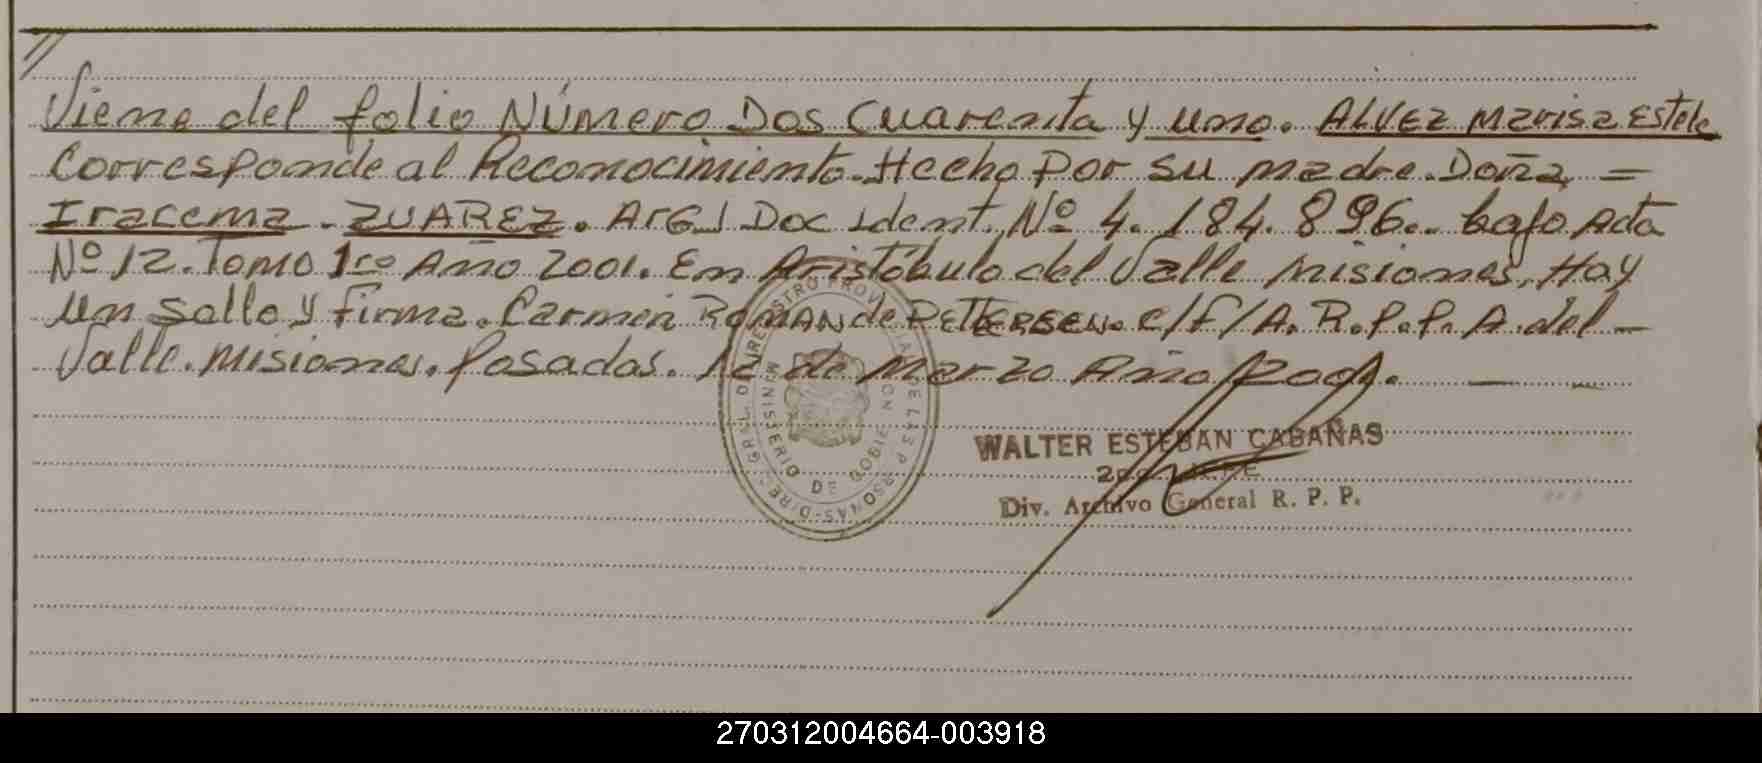 //
Viene del folio Número Dos Cuarenta y uno. ALVEZ Marisa Estela
Corresponde al Reconocimiento. Hecho Por su madre. Doña =
Iracema - ZUAREZ. ARG./ Doc Ident. Nº 4.184.896.. bajo Acta
Nº 12. Tomo 1ro Año 2001. En Aristóbulo del Valle Misiones, Hay
un sello y firma. Carmen ROMAN de PETTERSEN. c/f/A.R.P.P. A. del -
Valle. Misiones. Posadas. 12 de Marzo Año 2001. — —
DIREC. GRAL. DEL REGISTRO PROVINCIAL DE LAS PERSONAS
MINISTERIO DE GOBIERNO
WALTER ESTEBAN CABAÑAS
Div. Archivo General R. P. P.
270312004664-003918